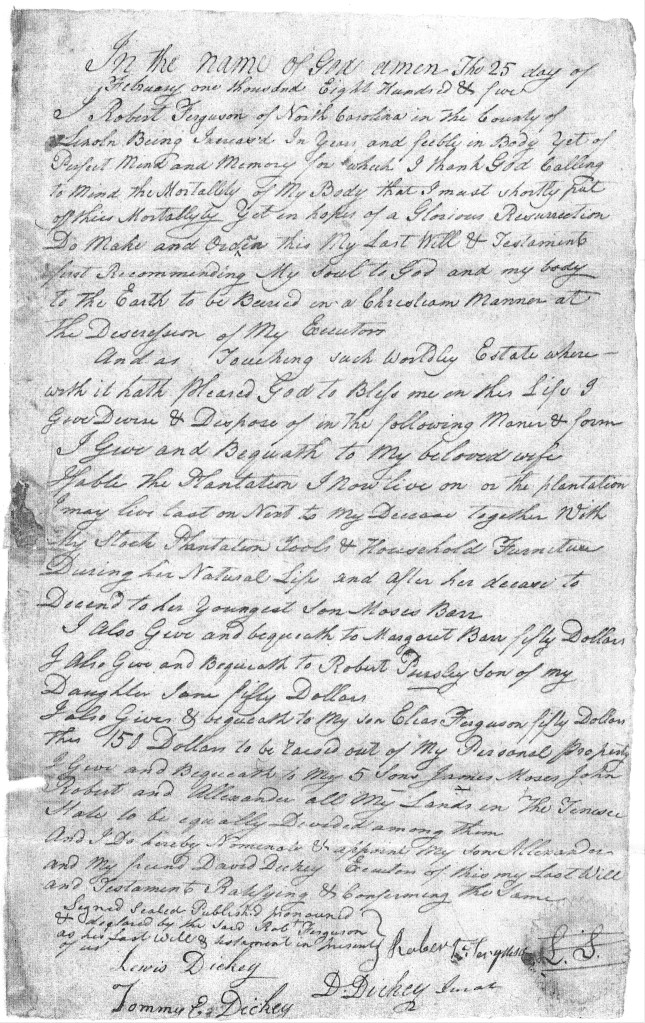 In the name of God amen The 25 day of
February one thousand Eight Hundred & five
I Robert Ferguson of North Carolina in the County of
Lincoln Being Increas'd In Years and feebly in Body Yet of
Perfect Mind and Memory for which I thank God Calling
to Mind the Mortallity of My Body that I must shortly put
off this Mortallyty Yet in hopes of a Glorious Resurrection
Do Make and Orden this My Last Will & Testament
first Recommending My Soul to God and my body
to the Earth to be Buried in a Christian Manner at
the Descression of My Executors
And as Touching such Worldley Estate where
with it hath pleased God to Bless me in this Life I
Give Devise & Dispose of in the following Maner & form
I Give and Bequath to My beloved wife
Isable the Plantation I Now live on or the plantation
I may live last on Next to my Decease together With
My Stock Plantation Tools & Household Furniture
During her Natural Life and after her decase to
Decend to her Youngest Son Moses Barr
I Also Give and bequeath to Margaret Barr fifty Dollars
I Also Give and Bequeath to Robert Pursley Son of my
Daughter Jane fifty Dollars
I also Give & bequeath to My son Elias Ferguson fifty Dollars
this 150 Dollars to be raised out of My Personal property
I Give and Bequeath to My 5 Sons James Moses John
Robert and Allexander all My Lands in The Tenesee
State to be equally Devided among them
And I Do hereby Nominate & appoint My Son Allexander
and My friend David Dickey Executors of this my Last Will
and Testament Ratifying & Confirming the Same
Signed Sealed Published pronounced
& declared by the Said Robt Ferguson
as his Last Will & testament in presents
of us
Robert Ferguson L. S.
Lewis Dickey
D. Dickey Jurat
Tommy Dickey